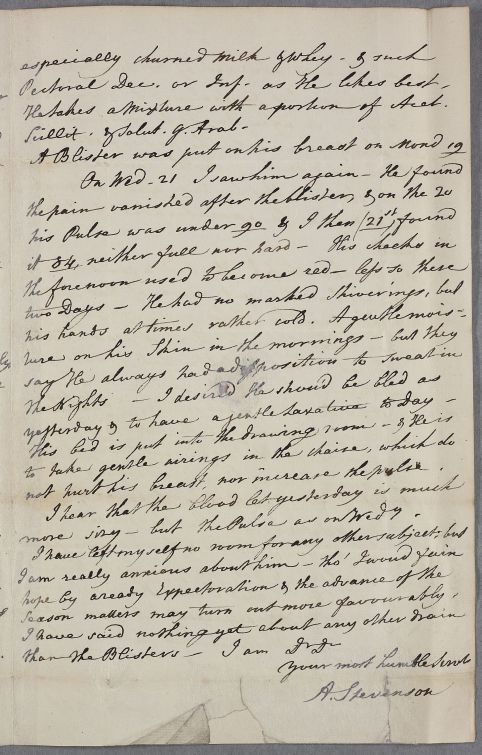 especially churned milk & whey - & such
Pectoral Dec. or Inf. as He likes best -
He takes a Mixture with a portion of Acet.
Scillit. & Solut. G. Arab -
A Blister was put on his breast on Mond 19
On Wed. 21 I saw him again - He found
the pain vanished after the blister, & on the 20
his Pulse was under 90 & I than (21st) found
it 84, neither full nor hard - His cheeks in
the forenoon used to become red - less so these
two Days - He had no marked Shiverings, but
his hands at times rather cold. A gentle mois-
ture on his Skin in the mornings - but they
say He always had a disposition to sweat in
the Nights - I desired He should be bled as
yesterday & to have a gentle Laxative to Day -
His bed is put into the drawing room - & He is
to take gentle airings in the chaise, which do
not hurt his breast, nor increase the pulse.
I hear that the blood let yesterday is much
more sizy - but the Pulse as on Wedy.
I have left myself no room for any other subject, but
I am really anxious about him - tho' I woud fain
hope by aready Expectoration & the advance of the
Season matters may turn out more favourably.
I have said nothing yet about any other drain
than the Blisters - I am Dr Dr
your most humble Servt
A. Stevenson